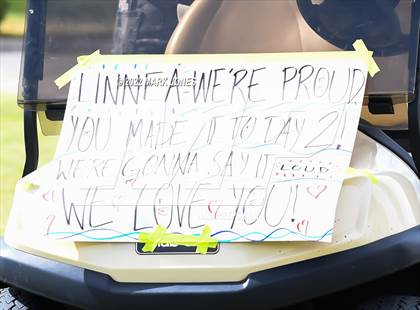 © 2022 MARK JONES
LINNEA-WE'RE PROUD
YOU MADE IT TO DAY 2!
WE'RE GONNA SAY IT LOUD
WE LOVE YOU!